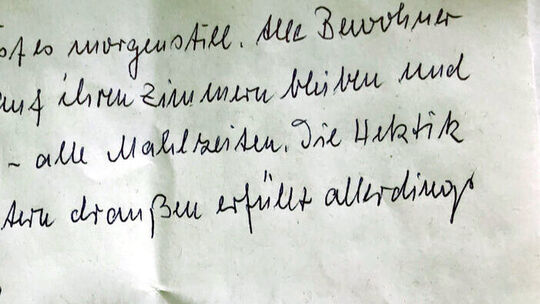 ist es morgenstill. Alle Bewohner
auf ihren Zimmern bleiben und
– alle Mahlzeiten. Die Hektik
draußen erfüllt allerdings